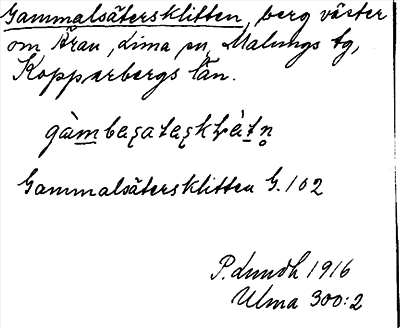 Gammalsätersklitten, berg väster
om Åran, Lima sn, Malungs tg,
Kopparbergs län.
Gammalsätersklitten G. 102
P. Lundh 1916
Ulma 300:2